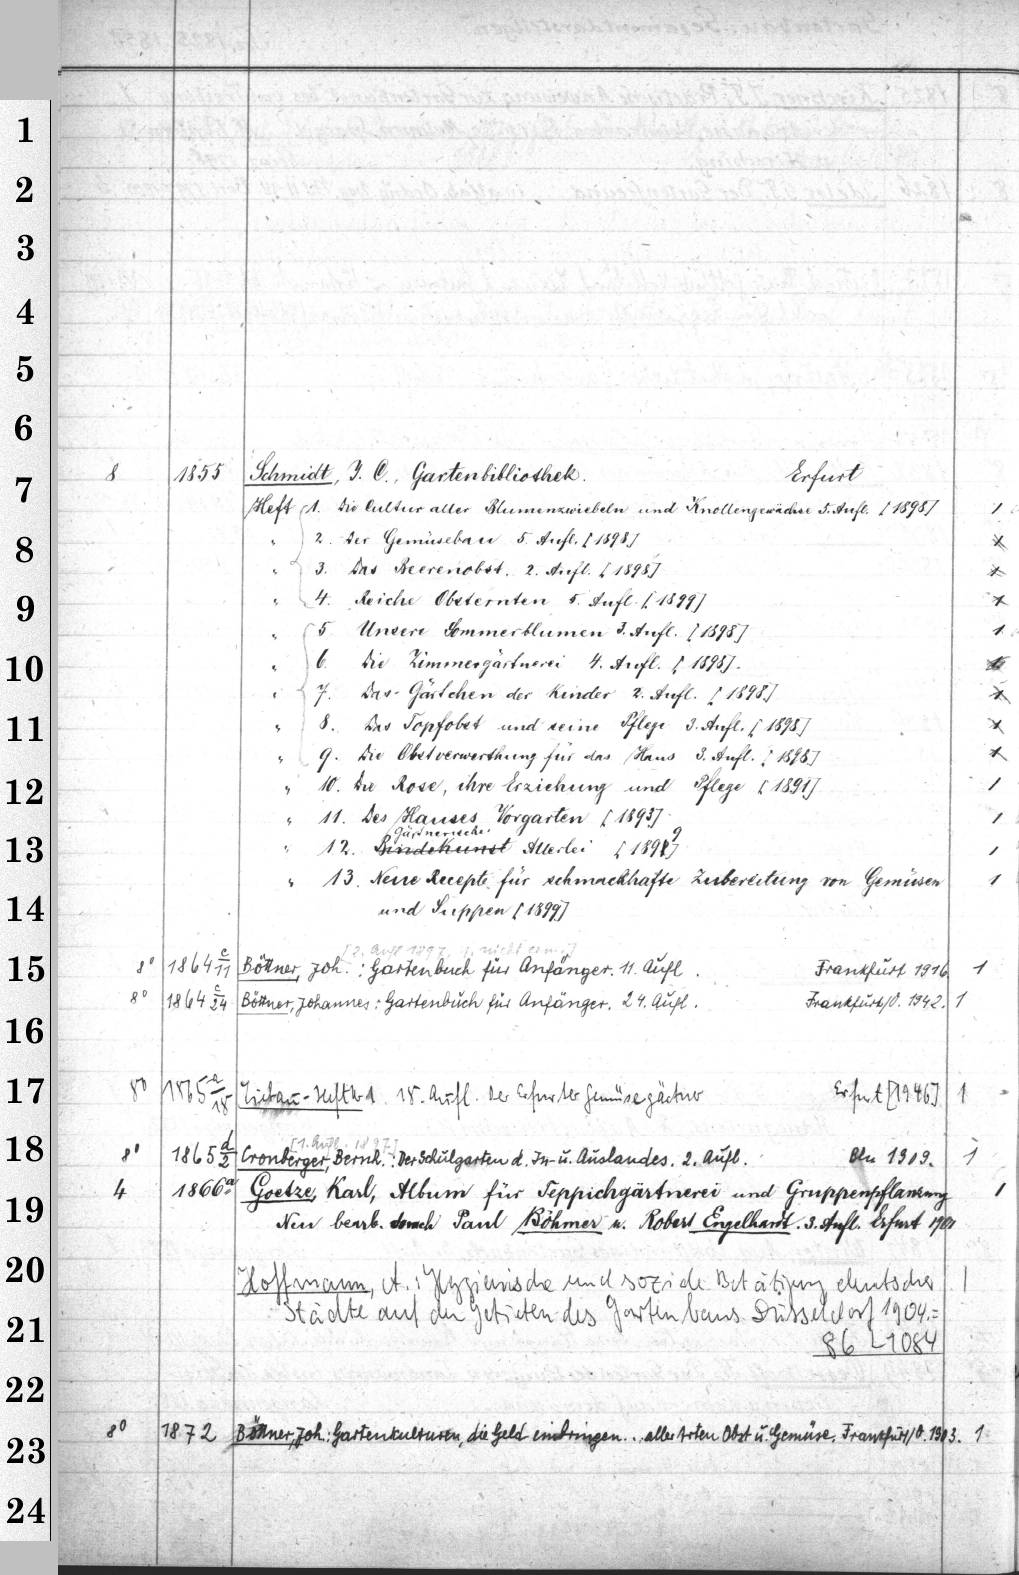 1
2
3
4
5
6
7
8
9
10
11
12
13
14
15
16
17
18
19
20
21
22
23
24
8 1855 Schmidt, J. C., Gartenbibliothek. Erfurt
Heft 1. Die Cultur aller Blumenzwiebeln und Knollengewächse 3. Aufl. [1898] 1
" 2. Der Gemüsebau 5. Aufl. [1898] x
" 3. Das Beerenobst. 2. Aufl. [1898] x
" 4. Reiche Obsternten 5. Aufl. [1899] x
" 5. Unsere Sommerblumen 3. Aufl. [1898] 1
" 6. Die Zimmergärtnerei 4. Aufl. [1898].
" 7. Das Gärtchen der Kinder 2. Aufl. [1898] x
" 8. Das Topfobst und seine Pflege 3. Aufl. [1898] x
" 9. Die Obstverwerthung für das Haus 3. Aufl. [1898] x
" 10. Die Rose, ihre Erziehung und Pflege [1891] 1
" 11. Des Hauses Vorgarten [1893] 1
Gärtnerisches
" 12. Bindekunst Allerlei [1899] 1
" 13. Neue Recepte für schmackhafte Zubereitung von Gemüsen 1
und Suppen [1899]
[2. Aufl. 1897, nicht
8° 1864 c/11 Böttner, Joh.: Gartenbuch für Anfänger. 11. Aufl. Frankfurt 1916 1
8° 1864 c/24 Böttner, Johannes: Gartenbuch für Anfänger. 24. Aufl. Frankfurt/O. 1942. 1
8° 1865 a/18 -Heft 18. Aufl. Der Erfurter Gemüsegärtner Erfurt [1946] 1
[1. Aufl. 1897]
8° 1865 d/2 Cronberger, Bernh.: Der Schulgarten d. In- u. Auslandes. 2. Aufl. Bln 1909. 1
4 1866a Goetze, Karl, Album für Teppichgärtnerei und Gruppenpflanzung 1
Neu bearb. durch Paul Böhmer u. Robert Engelhardt. 3. Aufl. Erfurt 1901
Hoffmann, A.: Hygienische und soziale Betätigung deutscher 1
Städte auf den Gebieten des Gartenbaus Düsseldorf 1904.=
86 L 1084
8° 1872 Böttner, Joh.: Gartenkulturen, die Geld einbringen.. aller Arten Obst u. Gemüse. Frankfurt/O. 1903. 1